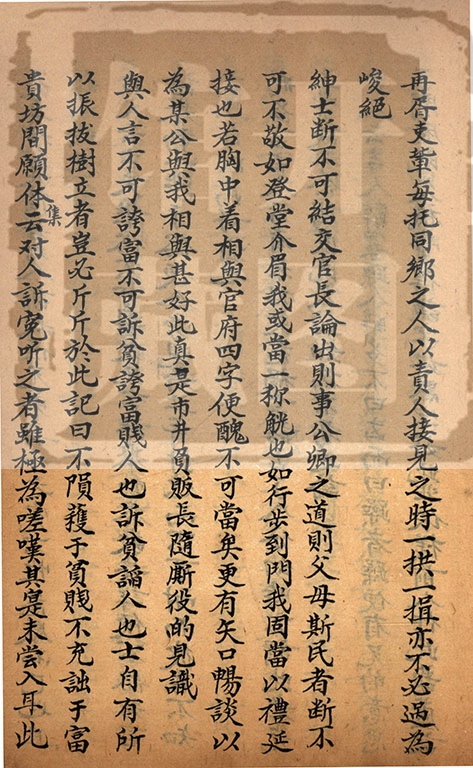 再胥吏輩每托同鄉之人以責人接見之時一拱一揖亦不必過為
峻絕
紳士斷不可結交官長論出則事公卿之道則父母斯民者斷不
可不敬如登堂介眉我或當一称觥也如行步到門我固當以禮延
接也若胸中着相與官府四字便醜不可當矣更有矢口暢談以
為某公與我相與甚好此真是市井負販長隨厮役的見識
與人言不可誇富不可訴貧誇富賤人也訴貧謟人也士自有所
以振拔樹立者豈必斤斤於此記曰不隕穫于貧賤不充詘于富
貴坊間願体集云对人訴寃听之者雖極為嗟嘆其寔未尝入耳此